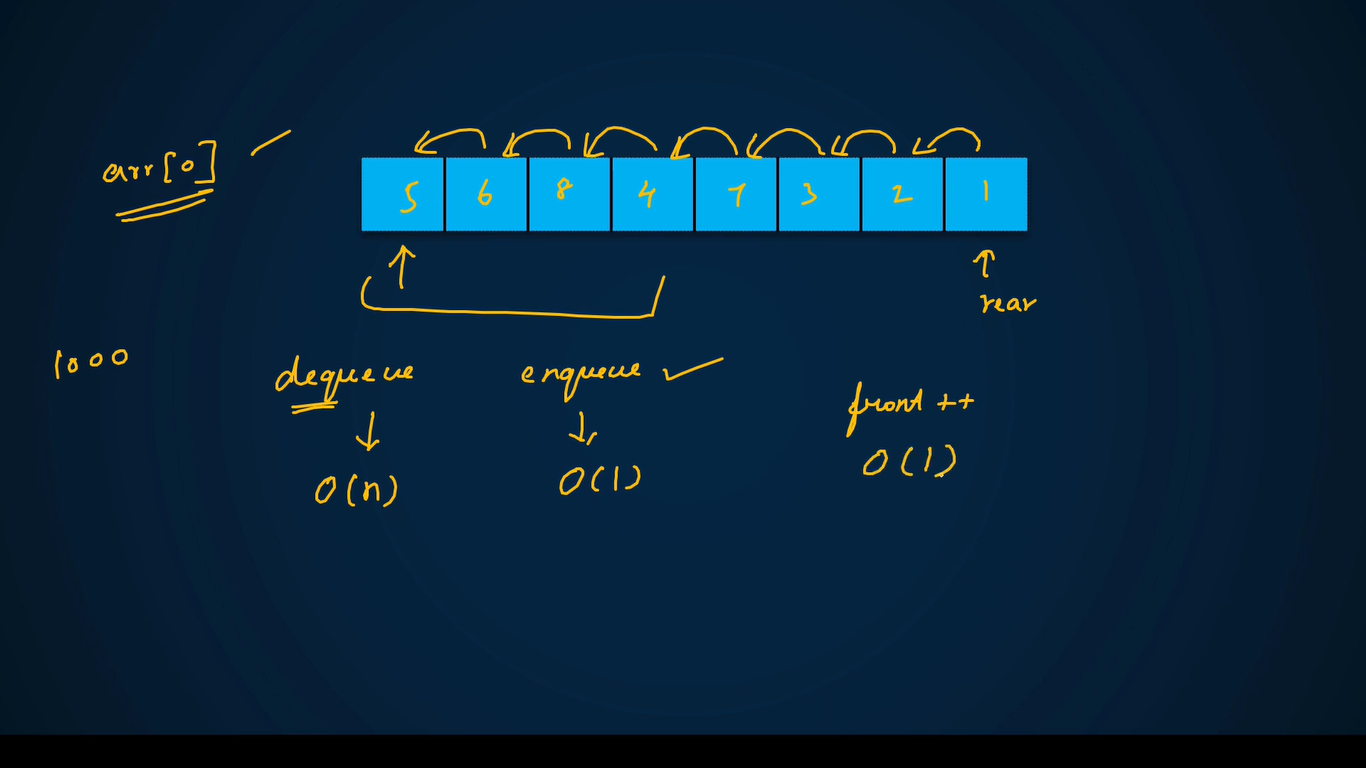 arr[0]
5 6 8 4 7 3 2 1
rear
1000
dequeue enqueue
front ++
O(n) O(1) O(1)